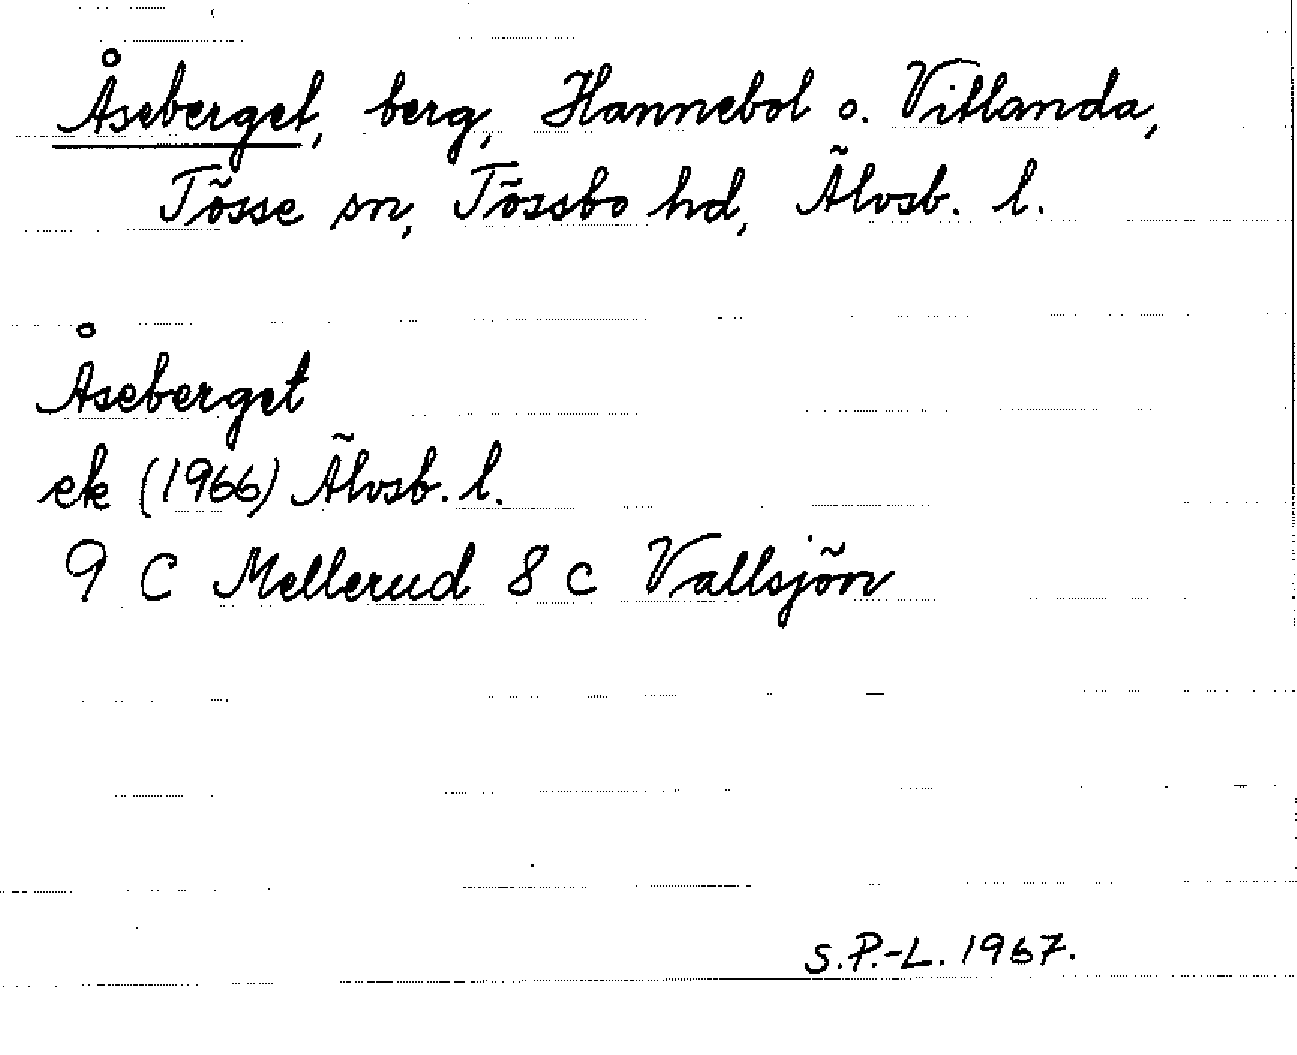 Åseberget, berg, Hannebol o. Vitlanda,
Tösse sn, Tössbo hd, Älvsb. l.
Åseberget
ek (1966) Älvsb. l.
9 C Mellerud 8 c Vallsjön
S.P.-L. 1967.